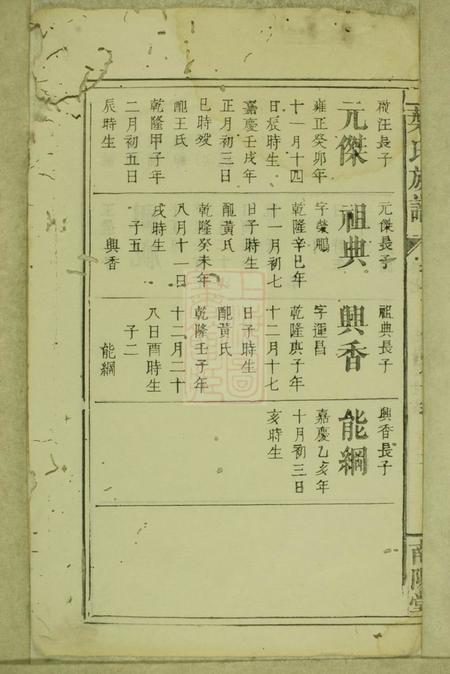 葉氏族譜
南陽堂
橫汪長子
元傑
雍正癸卯年
十一月十四
日辰時生
嘉慶壬戌年
正月初三日
巳時歿
配王氏
乾隆甲子年
二月初五日
辰時生
元傑長子
祖典
字榮鵬
乾隆辛巳年
十一月初七
日子時生
配黃氏
乾隆癸未年
八月十一日
戌時生
子五
興香
祖典長子
興香
字運昌
乾隆庚子年
十二月十七
日子時生
配黃氏
乾隆壬子年
十二月二十
八日酉時生
子二
能綱
興香長子
能綱
嘉慶乙亥年
十月初三日
亥時生